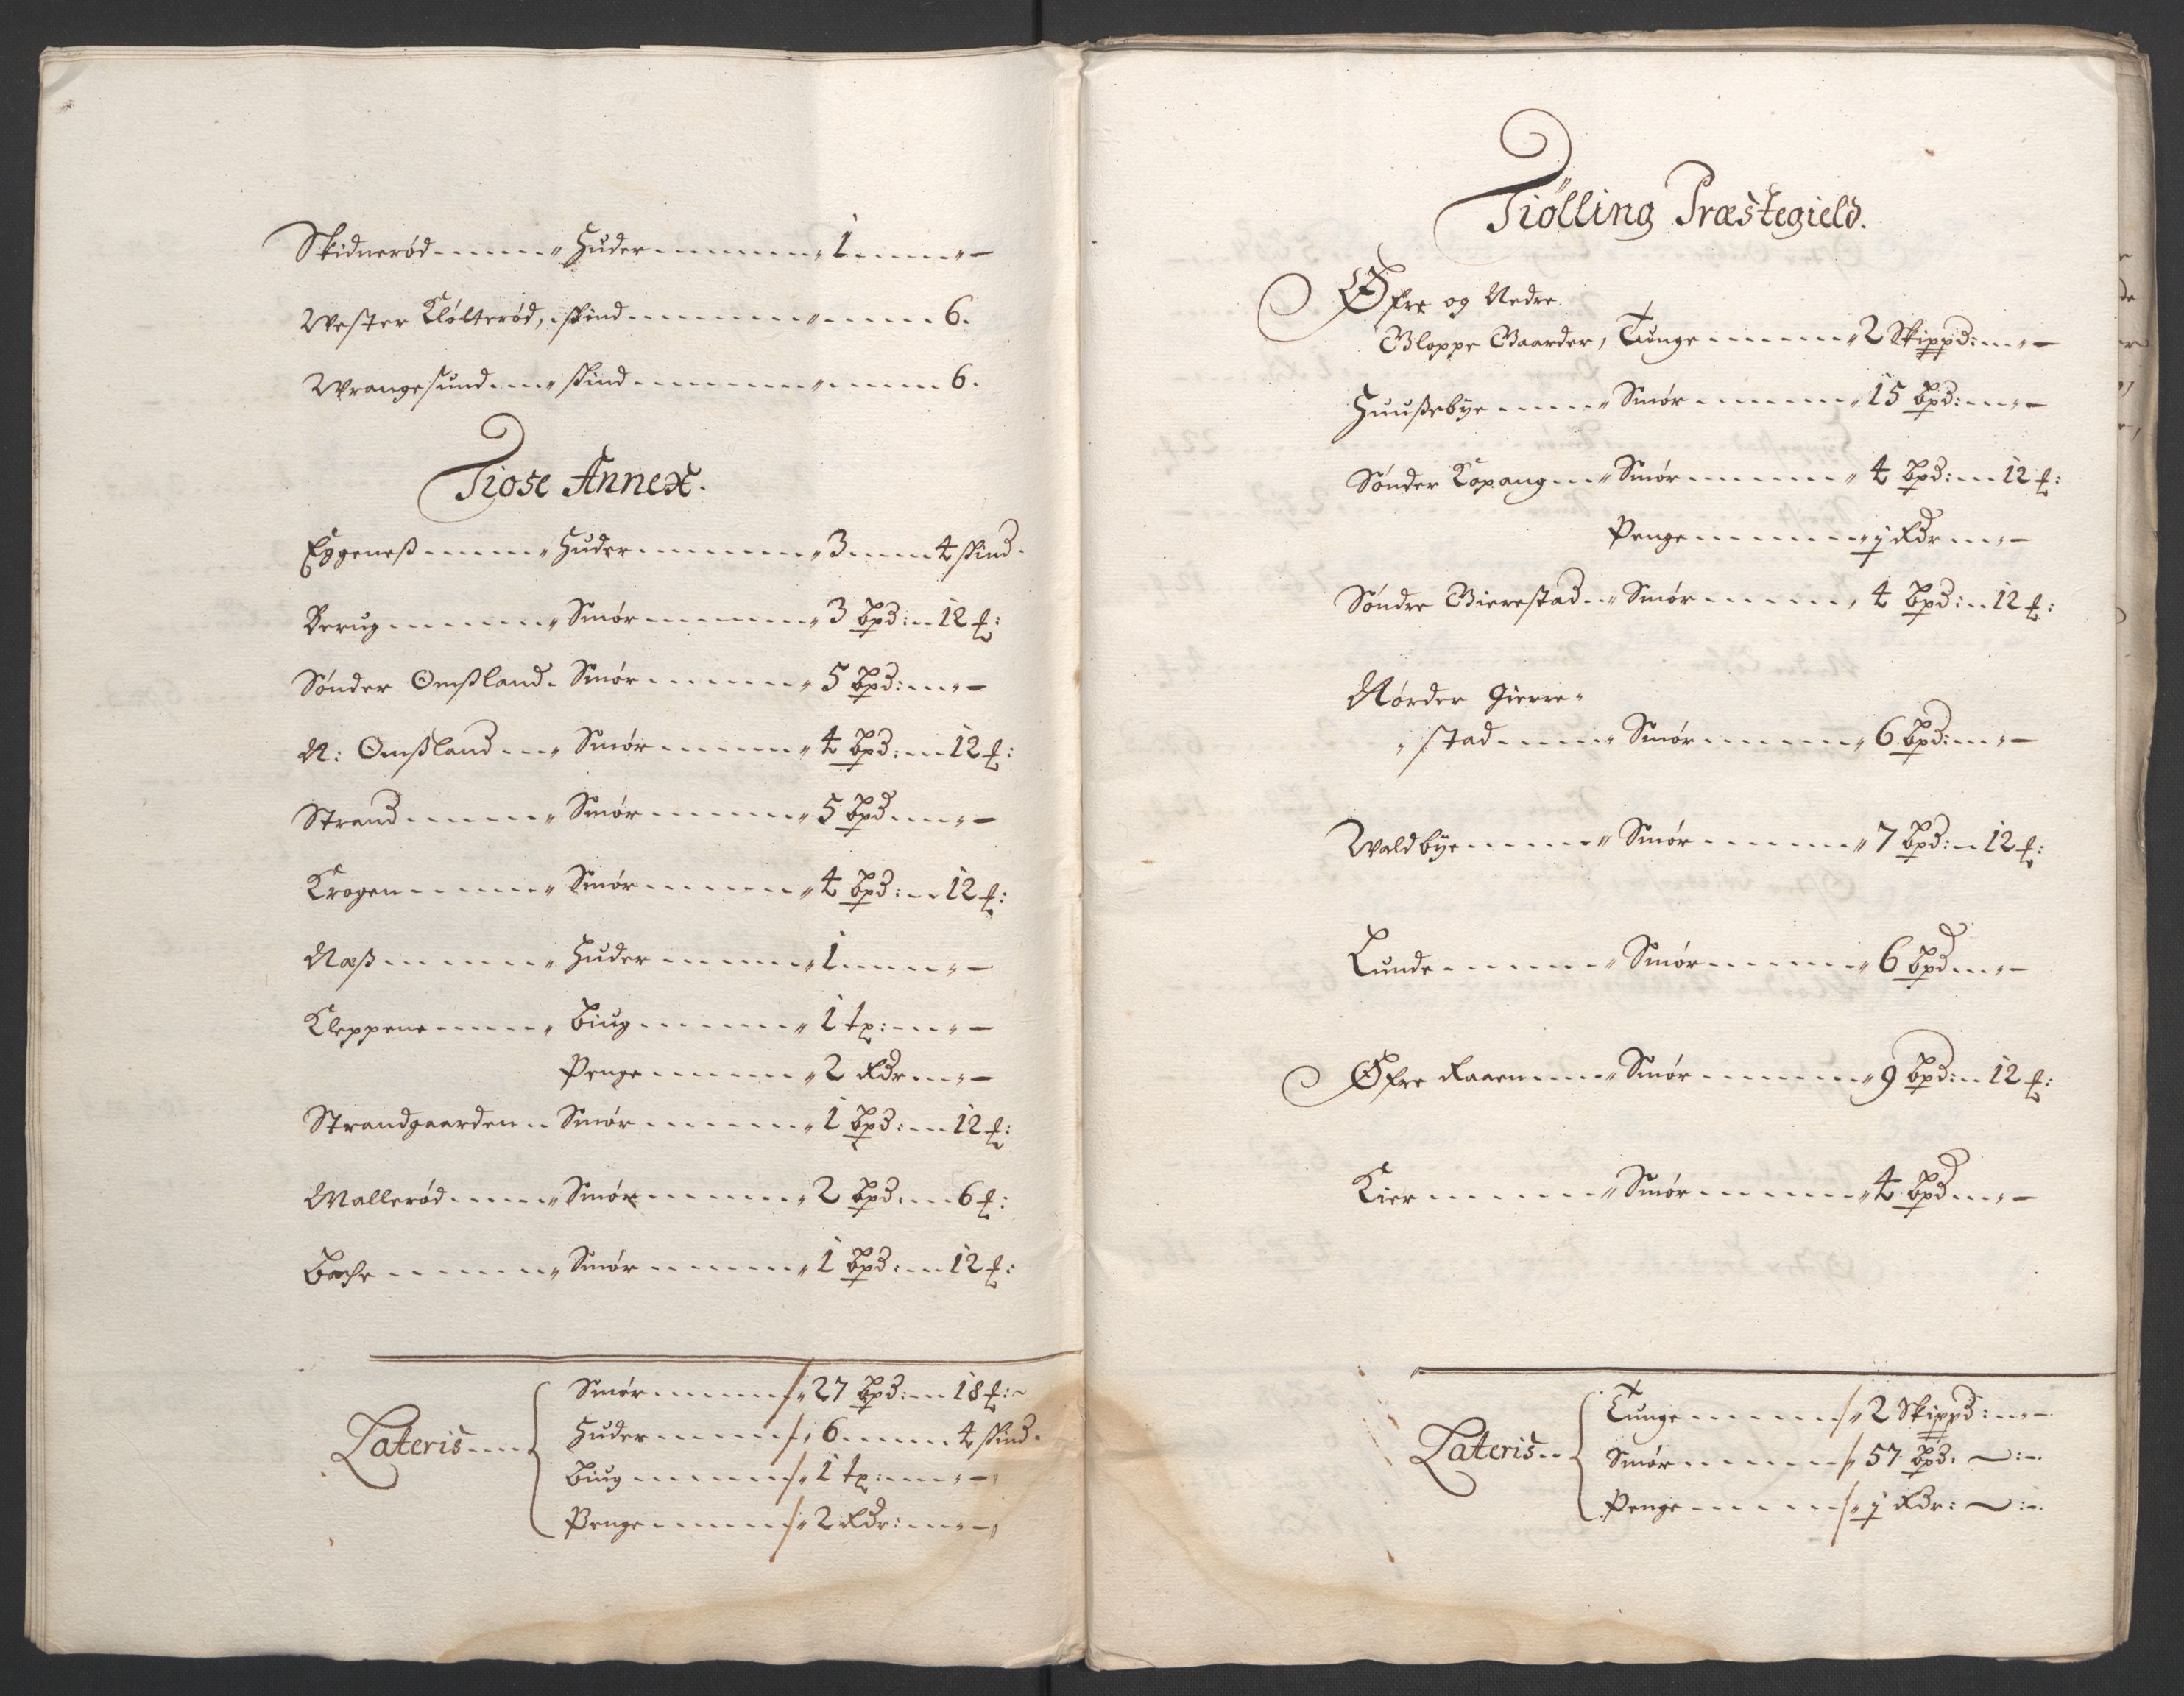 Skidnerød - - - - - „ Huder - - - - - - - „ 1 - - - - „ —
Wester Kløllterød, skind - - - - - - - „ - - - - - 6.
Wrangesund - - - „ skind - - - - - - - „ - - - - - 6.
Tiose Annex.
Eggeneß - - - - - „ Huder - - - - - - - „ 3 - - - - 4 skind.
Berug - - - - - - „ Smør - - - - - - - „ 3 Bpd: - - 12 ℔:
Sønder Omßland - Smør - - - - - - „ 5 Bpd: - - „ —
N: Omßland - - „ Smør - - - - - - „ 4 Bpd: - - 12 ℔:
Strand - - - - - - „ Smør - - - - - - „ 5 Bpd - - - „ —
Krogen - - - - - „ Smør - - - - - - „ 4 Bpd: - - 12 ℔:
Næß - - - - - - - „ Huder - - - - - - „ 1 - - - - „ —
Kleppene - - - - - „ Biug - - - - - - „ 1 tø: - - - „ —
Penge - - - - - - „ 2 Rdr - - - „ —
Strandgaarden - - Smør - - - - - - „ 1 Bpd: - - 12 ℔:
Mallerød - - - - - „ Smør - - - - - - „ 2 Bpd - - - 6 ℔:
Bache - - - - - - „ Smør - - - - - - „ 1 Bpd: - - 12 ℔:
Lateris - - -
Smør - - - - - - /„ 27 Bpd: - - 18 ℔: ~
Huder - - - - - /„ 6 - - - - - 4 skind.
Biug - - - - - - /„ 1 tø: - - - „ —„
Penge - - - - - /„ 2 Rdr: - - - „ —„
Tiølling Præstegield.
Øfre og Nedre
Gloppe Gaarder, Tunge - - - - - - „ 2 Skippd: - - „ —
Huußebye - - - - - „ Smør - - - - - - „ 15 Bpd: - - - „ —
Sønder Kopang - - „ Smør - - - - - - „ 4 Bpd: - - 12 ℔:
Penge - - - - - - - „ j Rdr - - - „ —
Søndre Gierestad - - Smør - - - - - „ 4 Bpd: - - 12 ℔:
Nørder Gierre=
„ stad - - - - - „ Smør - - - - - - „ 6 Bpd: - - „ —
Waldbye - - - - - „ Smør - - - - - - „ 7 Bpd: - - 12 ℔:
Lunde - - - - - - „ Smør - - - - - - „ 6 Bpd - - - „ —
Øfre Raaen - - - - „ Smør - - - - - - „ 9 Bpd: - - 12 ℔:
Kier - - - - - - - „ Smør - - - - - - „ 4 Bpd - - - „ —
Lateris - -
Tunge - - - - - - /„ 2 Skippd: - - „ —
Smør - - - - - - /„ 57 Bpd: ~ : —.
Penge - - - - - /„ j Rdr: ~ : —.